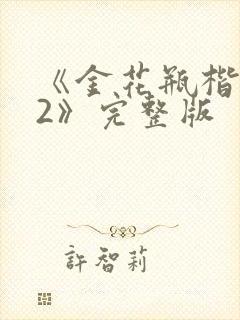 《金花瓶楷
2》完整版
許智莉